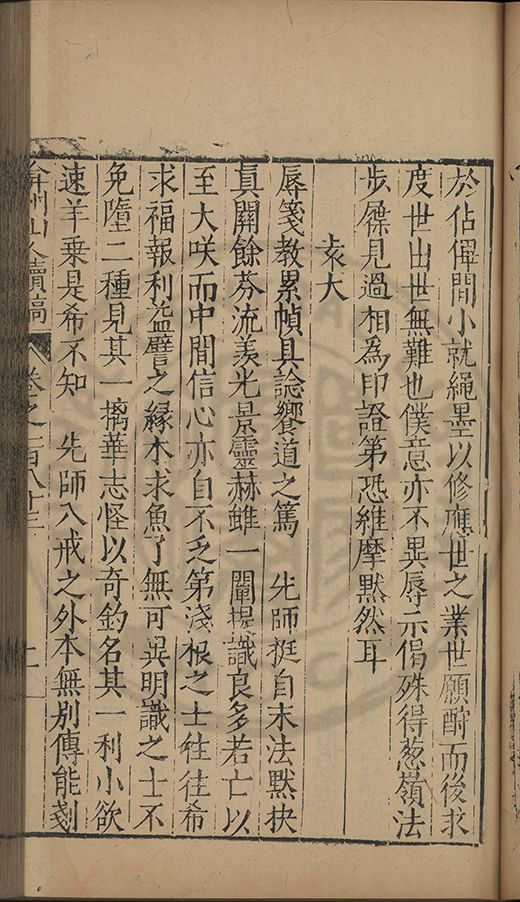 於佔僤間小就繩墨以修應世之業世願酧而後求
度世出世無難也僕意亦不異辱示偈殊得葱嶺法
步屧見過相為印證第恐維摩默然耳
袁大
辱箋教累幀具諗饗道之篤　先師挺自末法默抉
真關餘芬流羨光景靈赫雖一闡提識良多若亡以
至大咲而中間信心亦自不乏第淺根之士徃徃希
求福報利益譬之緣木求魚了無可異明識之士不
免墮二種見其一摛華志怪以奇釣名其一利小欲
速羊乗是希不知　先師八戒之外本無別傳能剗
弇州山人續稿 卷之一百八十三